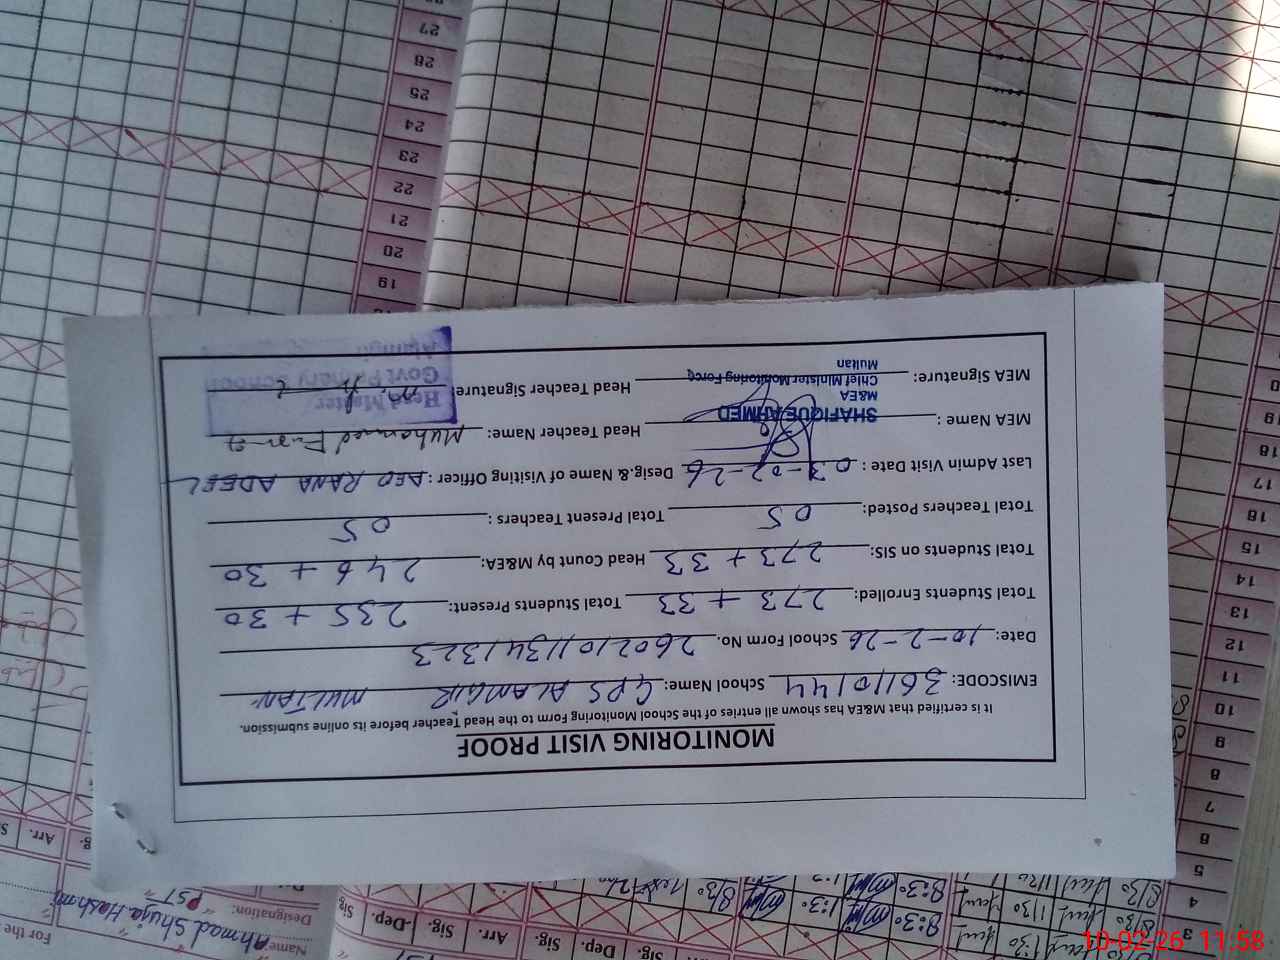 MONITORING VISIT PROOF
It is certified that M&EA has shown all entries of the School Monitoring Form to the Head Teacher before its online submission.
EMISCODE: 36110144 School Name: GPS ALAMGIR MULTAN
Date: 10-2-26 School Form No. 26021011341323
Total Students Enrolled: 273 + 33 Total Students Present: 235 + 30
Total Students on SIS: 273 + 33 Head Count by M&EA: 246 + 30
Total Teachers Posted: 05 Total Present Teachers : 05
Last Admin Visit Date : 03-02-26 Desig.& Name of Visiting Officer : AEO RANA ADEEL
MEA Name : SHAFIQUE AHMED Head Teacher Name: Muhammad
M&EA
Chief Minister Monitoring Force
Multan
MEA Signature: Head Teacher Signature:
Head Master
Govt Primary School
Alamgir
27
26
25
24
23
22
21
20
19
20
19
18
17
16
15
14
13
12
11
10
9
8
7
6
5
4
3
Name: Ahmad Shuja Hashmi
Designation: PST
For the
Arr. Sig. Dep. Sig.
8:30 1:30
8:30
10-02-26 11:58